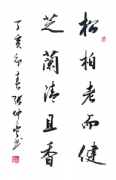 松柏老而健
芝蘭清且香
丁亥年春張仲亭書